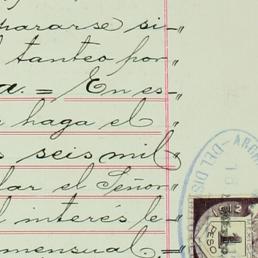 pararse si-"
tanteo por"
a. = En es-"
haga el "
s seis mil "
lar el Señor"
l interés le-"
mensual
ARCH
DEL DIS
1
PESO